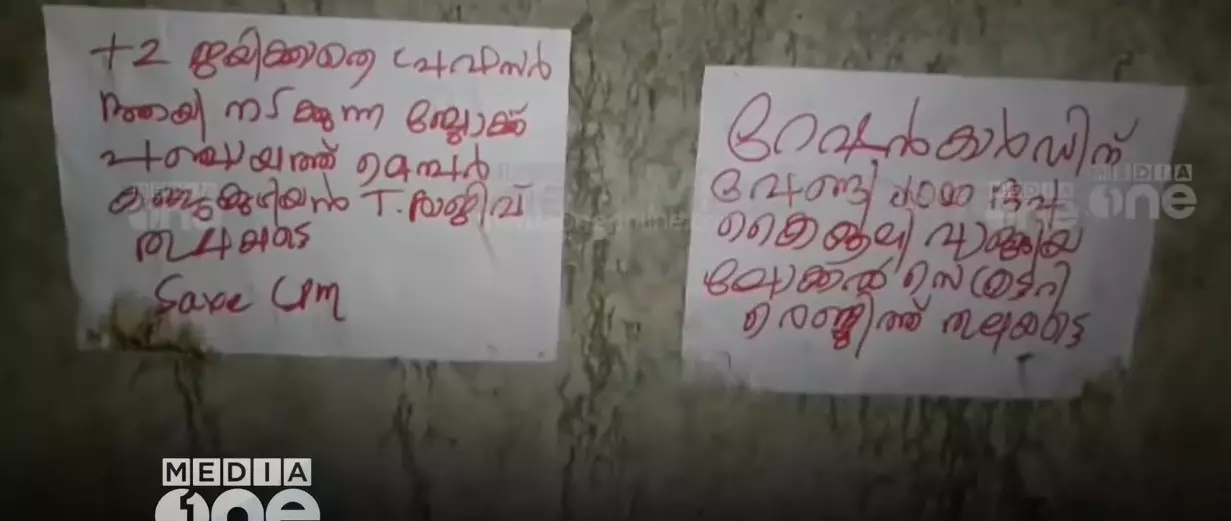 +2 ജയിക്കാതെ പ്രഫസർ
ആയി നടക്കുന്ന ബ്ലോക്ക്
പഞ്ചായത്ത് മെമ്പർ
T. രാജീവ്
തുലയട്ടെ
Save CPM
റേഷൻകാർഡിന്
വേണ്ടി രൂപ
കൈക്കൂലി വാങ്ങിയ
ലോക്കൽ സെക്രട്ടറി
രഞ്ജിത്ത് തുലയട്ടെ
MEDIA
one
MEDIA
one